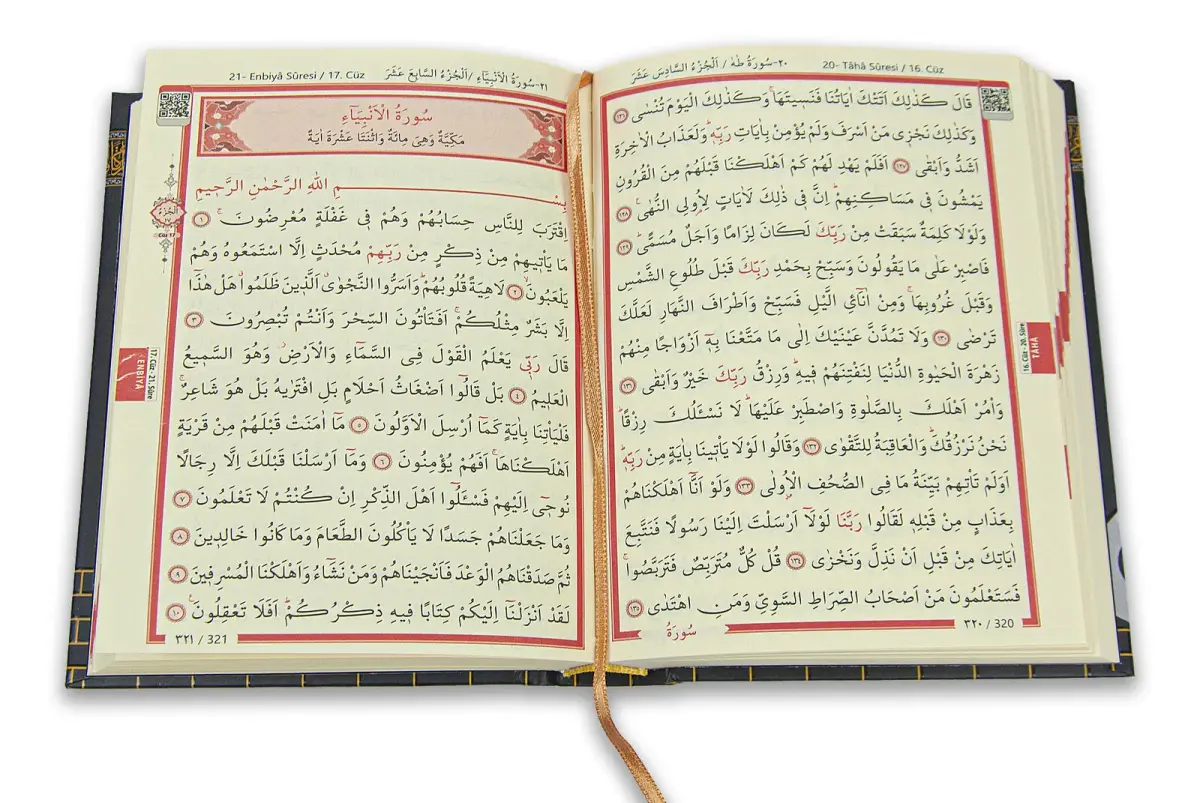 ٢٠-سُورَةُ طٰهٰ / اَلْجُزْءُ السَّادِسَ عَشَرَ 20- Tâhâ Sûresi / 16. Cüz
قَالَ كَذٰلِكَ اَتَتْكَ اٰيَاتُنَا فَنَسٖيتَهَاۚ وَكَذٰلِكَ الْيَوْمَ تُنْسٰى ١٢٦
وَكَذٰلِكَ نَجْزٖى مَنْ اَسْرَفَ وَلَمْ يُؤْمِنْ بِاٰيَاتِ رَبِّهٖۜ وَلَعَذَابُ الْاٰخِرَةِ
اَشَدُّ وَاَبْقٰى ١٢٧ اَفَلَمْ يَهْدِ لَهُمْ كَمْ اَهْلَكْنَا قَبْلَهُمْ مِنَ الْقُرُونِ
يَمْشُونَ فٖى مَسَاكِنِهِمْۜ اِنَّ فٖى ذٰلِكَ لَاٰيَاتٍ لِاُولِى النُّهٰىۚ ١٢٨
وَلَوْلَا كَلِمَةٌ سَبَقَتْ مِنْ رَبِّكَ لَكَانَ لِزَامًا وَاَجَلٌ مُسَمًّىۜ ١٢٩
فَاصْبِرْ عَلٰى مَا يَقُولُونَ وَسَبِّحْ بِحَمْدِ رَبِّكَ قَبْلَ طُلُوعِ الشَّمْسِ
وَقَبْلَ غُرُوبِهَاۚ وَمِنْ اٰنَٓائِ الَّيْلِ فَسَبِّحْ وَاَطْرَافَ النَّهَارِ لَعَلَّكَ
تَرْضٰى ١٣٠ وَلَا تَمُدَّنَّ عَيْنَيْكَ اِلٰى مَا مَتَّعْنَا بِهٖٓ اَزْوَاجًا مِنْهُمْ
زَهْرَةَ الْحَيٰوةِ الدُّنْيَا لِنَفْتِنَهُمْ فٖيهِۜ وَرِزْقُ رَبِّكَ خَيْرٌ وَاَبْقٰى ١٣١
وَاْمُرْ اَهْلَكَ بِالصَّلٰوةِ وَاصْطَبِرْ عَلَيْهَاۜ لَا نَسْـَٔلُكَ رِزْقًاۜ
نَحْنُ نَرْزُقُكَۜ وَالْعَاقِبَةُ لِلتَّقْوٰى ١٣٢ وَقَالُوا لَوْلَا يَاْتٖينَا بِاٰيَةٍ مِنْ رَبِّهٖۜ
اَوَلَمْ تَاْتِهِمْ بَيِّنَةُ مَا فِى الصُّحُفِ الْاُولٰى ١٣٣ وَلَوْ اَنَّٓا اَهْلَكْنَاهُمْ
بِعَذَابٍ مِنْ قَبْلِهٖ لَقَالُوا رَبَّنَا لَوْلَٓا اَرْسَلْتَ اِلَيْنَا رَسُولًا فَنَتَّبِعَ
اٰيَاتِكَ مِنْ قَبْلِ اَنْ نَذِلَّ وَنَخْزٰى ١٣٤ قُلْ كُلٌّ مُتَرَبِّصٌ فَتَرَبَّصُواۚ
فَسَتَعْلَمُونَ مَنْ اَصْحَابُ الصِّرَاطِ السَّوِىِّ وَمَنِ اهْتَدٰى ١٣٥
سُورَةُ
٣٢٠ / 320
16. Cüz - 20. Sûre
TÂHÂ
21- Enbiyâ Sûresi / 17. Cüz ٢١-سُورَةُ الْاَنْبِيَٓاءِ / اَلْجُزْءُ السَّابِعَ عَشَرَ
سُورَةُ الْاَنْبِيَٓاءِ
مَكِّيَّةٌ وَهِىَ مِائَةٌ وَاثْنَتَا عَشْرَةَ اٰيَةً
بِسْمِ اللّٰهِ الرَّحْمٰنِ الرَّحٖيمِ
اِقْتَرَبَ لِلنَّاسِ حِسَابُهُمْ وَهُمْ فٖى غَفْلَةٍ مُعْرِضُونَۚ ١
مَا يَاْتٖيهِمْ مِنْ ذِكْرٍ مِنْ رَبِّهِمْ مُحْدَثٍ اِلَّا اسْتَمَعُوهُ وَهُمْ
يَلْعَبُونَۙ ٢ لَاهِيَةً قُلُوبُهُمْۜ وَاَسَرُّوا النَّجْوٰىۗ اَلَّذٖينَ ظَلَمُواۗ هَلْ هٰذَٓا
اِلَّا بَشَرٌ مِثْلُكُمْۚ اَفَتَاْتُونَ السِّحْرَ وَاَنْتُمْ تُبْصِرُونَ ٣
قَالَ رَبّٖى يَعْلَمُ الْقَوْلَ فِى السَّمَٓاءِ وَالْاَرْضِۘ وَهُوَ السَّمٖيعُ
الْعَلٖيمُ ٤ بَلْ قَالُٓوا اَضْغَاثُ اَحْلَامٍ بَلِ افْتَرٰيهُ بَلْ هُوَ شَاعِرٌۚ
فَلْيَاْتِنَا بِاٰيَةٍ كَمَٓا اُرْسِلَ الْاَوَّلُونَ ٥ مَٓا اٰمَنَتْ قَبْلَهُمْ مِنْ قَرْيَةٍ
اَهْلَكْنَاهَاۚ اَفَهُمْ يُؤْمِنُونَ ٦ وَمَٓا اَرْسَلْنَا قَبْلَكَ اِلَّا رِجَالًا
نُوحٖٓى اِلَيْهِمْ فَسْـَٔلُٓوا اَهْلَ الذِّكْرِ اِنْ كُنْتُمْ لَا تَعْلَمُونَ ٧
وَمَا جَعَلْنَاهُمْ جَسَدًا لَا يَاْكُلُونَ الطَّعَامَ وَمَا كَانُوا خَالِدٖينَ ٨
ثُمَّ صَدَقْنَاهُمُ الْوَعْدَ فَاَنْجَيْنَاهُمْ وَمَنْ نَشَٓاءُ وَاَهْلَكْنَا الْمُسْرِفٖينَ ٩
لَقَدْ اَنْزَلْنَٓا اِلَيْكُمْ كِتَابًا فٖيهِ ذِكْرُكُمْۜ اَفَلَا تَعْقِلُونَۚ ١٠
٣٢١ / 321
اَلْجُزْءُ
١٧
Cüz 17
17. Cüz - 21. Sûre
ENBİYÂ